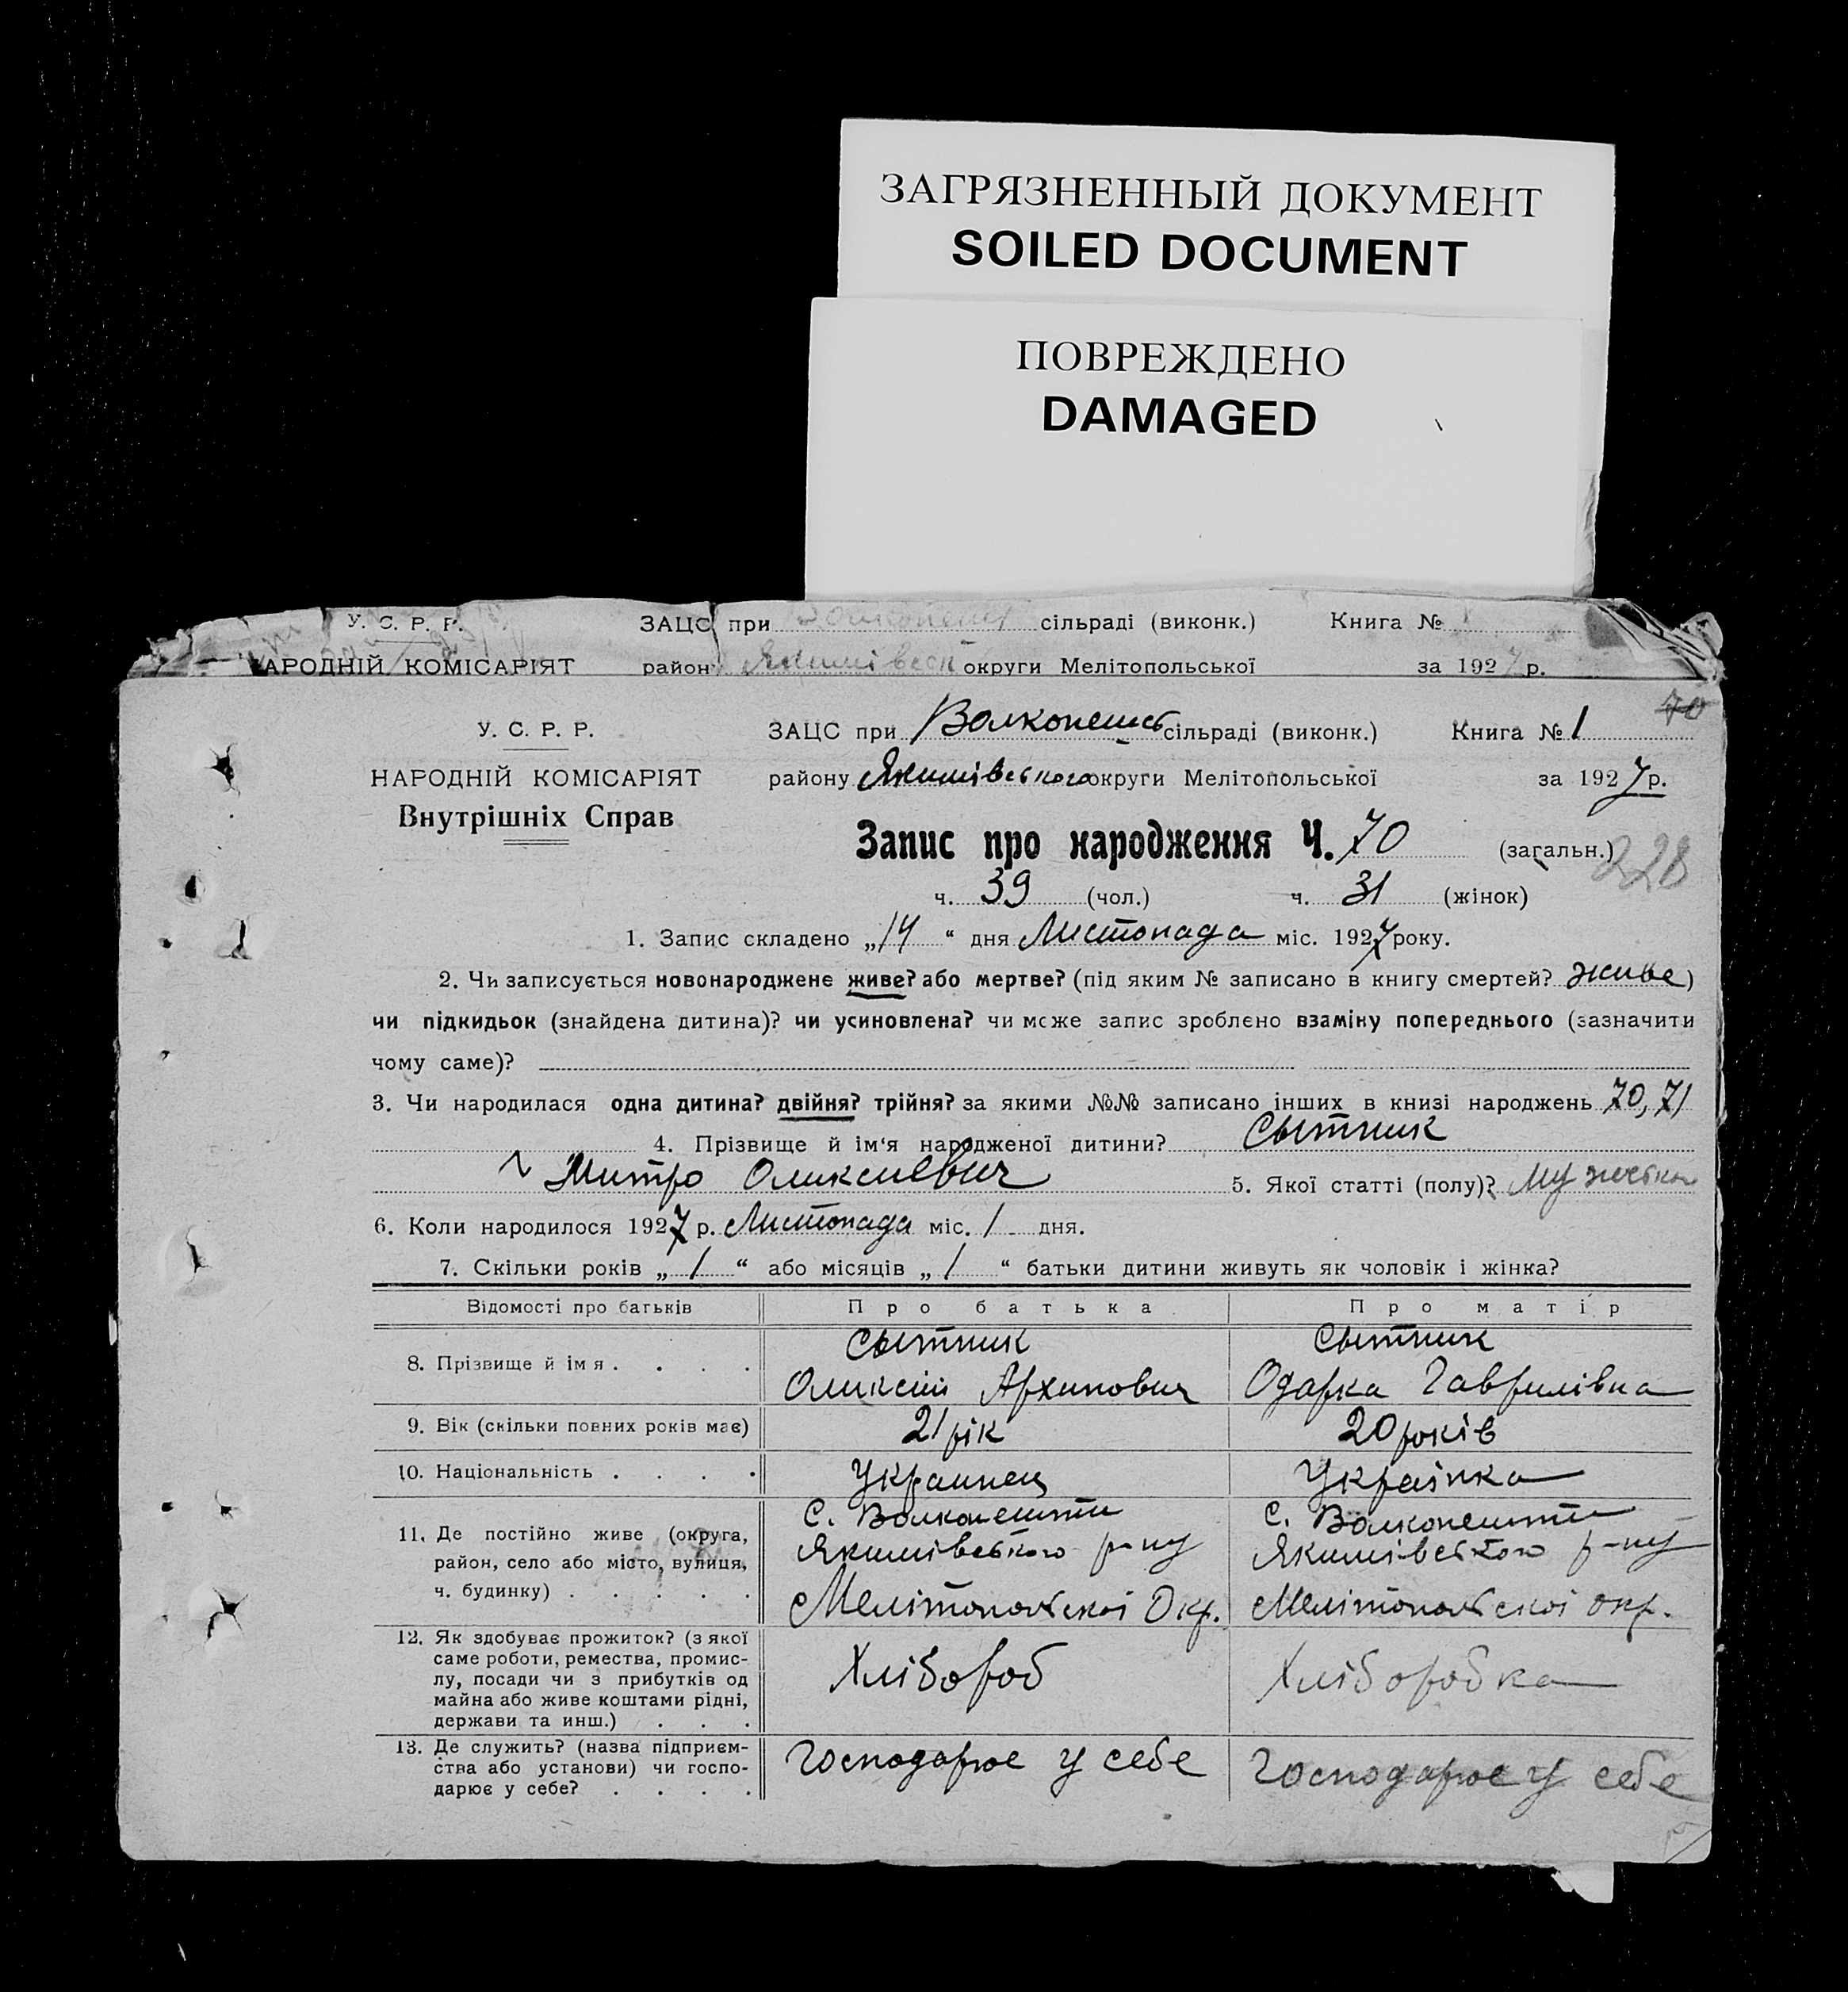 ЗАГРЯЗНЕННЫЙ ДОКУМЕНТ
SOILED DOCUMENT
ПОВРЕЖДЕНО
DAMAGED
У. С. Р. Р. ЗАЦС при сільраді (виконк.) Книга №
НАРОДНІЙ КОМІСАРІЯТ район Якимівськ округи Мелітопольської за 1927 р.
70
У. С. Р. Р. ЗАЦС при Волконешт сільраді (виконк.) Книга № 1
НАРОДНІЙ КОМІСАРІЯТ району Якимівського округи Мелітопольської за 1927 р.
Внутрішніх Справ
Запис про народження Ч. 70 (загальн.) 228
ч. 39 (чол.) ч. 31 (жінок)
1. Запис складено „14“ дня Листопада міс. 1927 року.
2. Чи записується новонароджене живе? або мертве? (під яким № записано в книгу смертей? живе)
чи підкидьок (знайдена дитина)? чи усиновлена? чи може запис зроблено взаміну попереднього (зазначити
чому саме)?
3. Чи народилася одна дитина? двійня? трійня? за якими №№ записано інших в книзі народжень 70, 71
4. Прізвище й ім'я народженої дитини? Сытник
Митро Олексиевич 5. Якої статті (полу)? Мужеська
6. Коли народилося 1927 р. Листопада міс. 1 дня.
7. Скільки років „1“ або місяців „1“ батьки дитини живуть як чоловік і жінка?
Відомості про батьків Про батька Про матір
8. Прізвище й імя . . . . Сытник Сытник
Оликсій Архипович Одарка Гаврилівна
9. Вік (скільки повних років має) 21 рік 20 років
10. Національність . . . . Украинец Українка
11. Де постійно живе (округа, район, село або місто, вулиця, ч. будинку) . . . . . С. Волконешти С. Волконешти
Якимівського р-ну Якимівського р-ну
Мелітопольскої Окр. Мелітопольскої окр.
12. Як здобуває прожиток? (з якої
саме роботи, ремества, промис-
лу, посади чи з прибутків од Хлібороб Хліборобка
майна або живе коштами рідні,
держави та инш.) . . .
13. Де служить? (назва підприєм- Господарює у себе Господарює у себе
ства або установи) чи госпо-
дарює у себе? . . . .